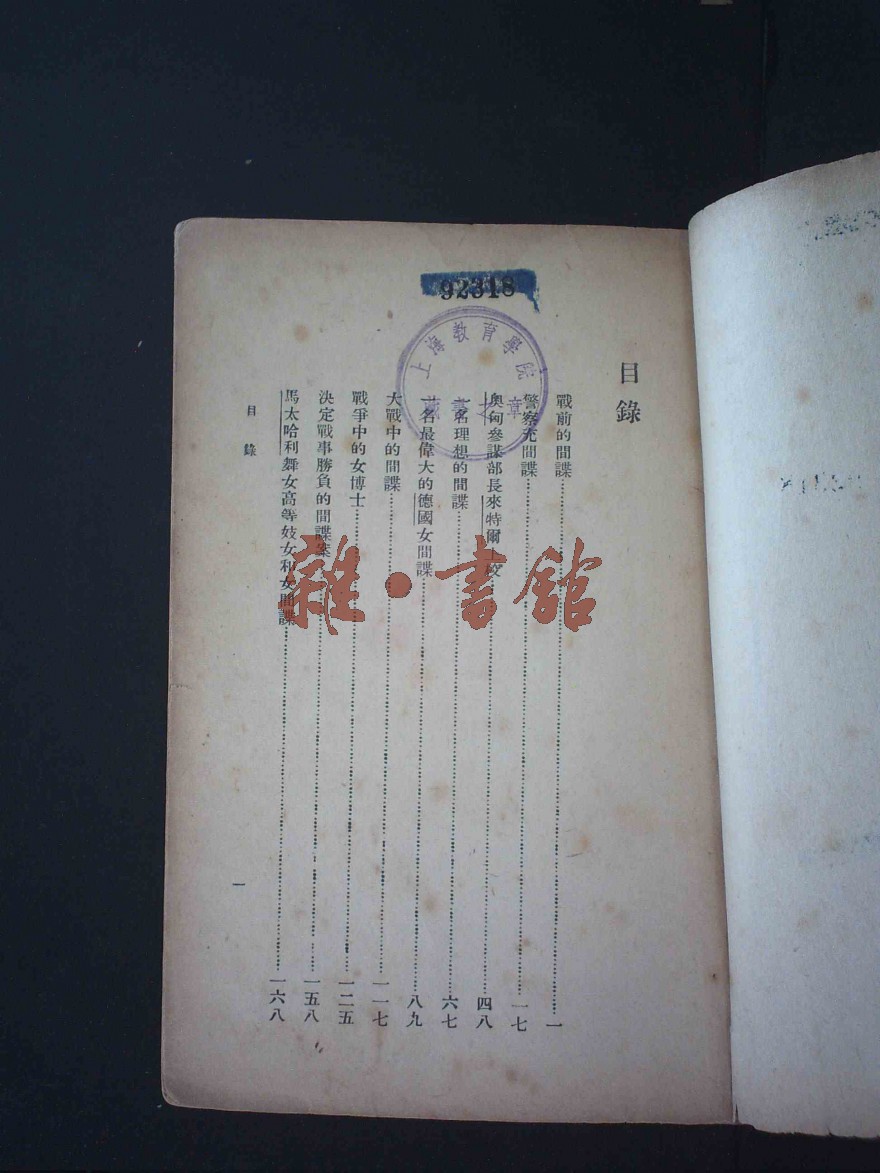 92318
上海教育學院
藏書之章
目錄
戰前的間諜…………一
警察充間諜…………一七
奧匈參謀部長來特爾上校…………四八
一名理想的間諜…………六七
一名最偉大的德國女間諜…………八九
大戰中的間諜…………一一七
戰爭中的女博士…………一二五
決定戰事勝負的間諜案…………一五八
馬太哈利舞女高等妓女和女間諜…………一六八
目錄
一
雜·書館